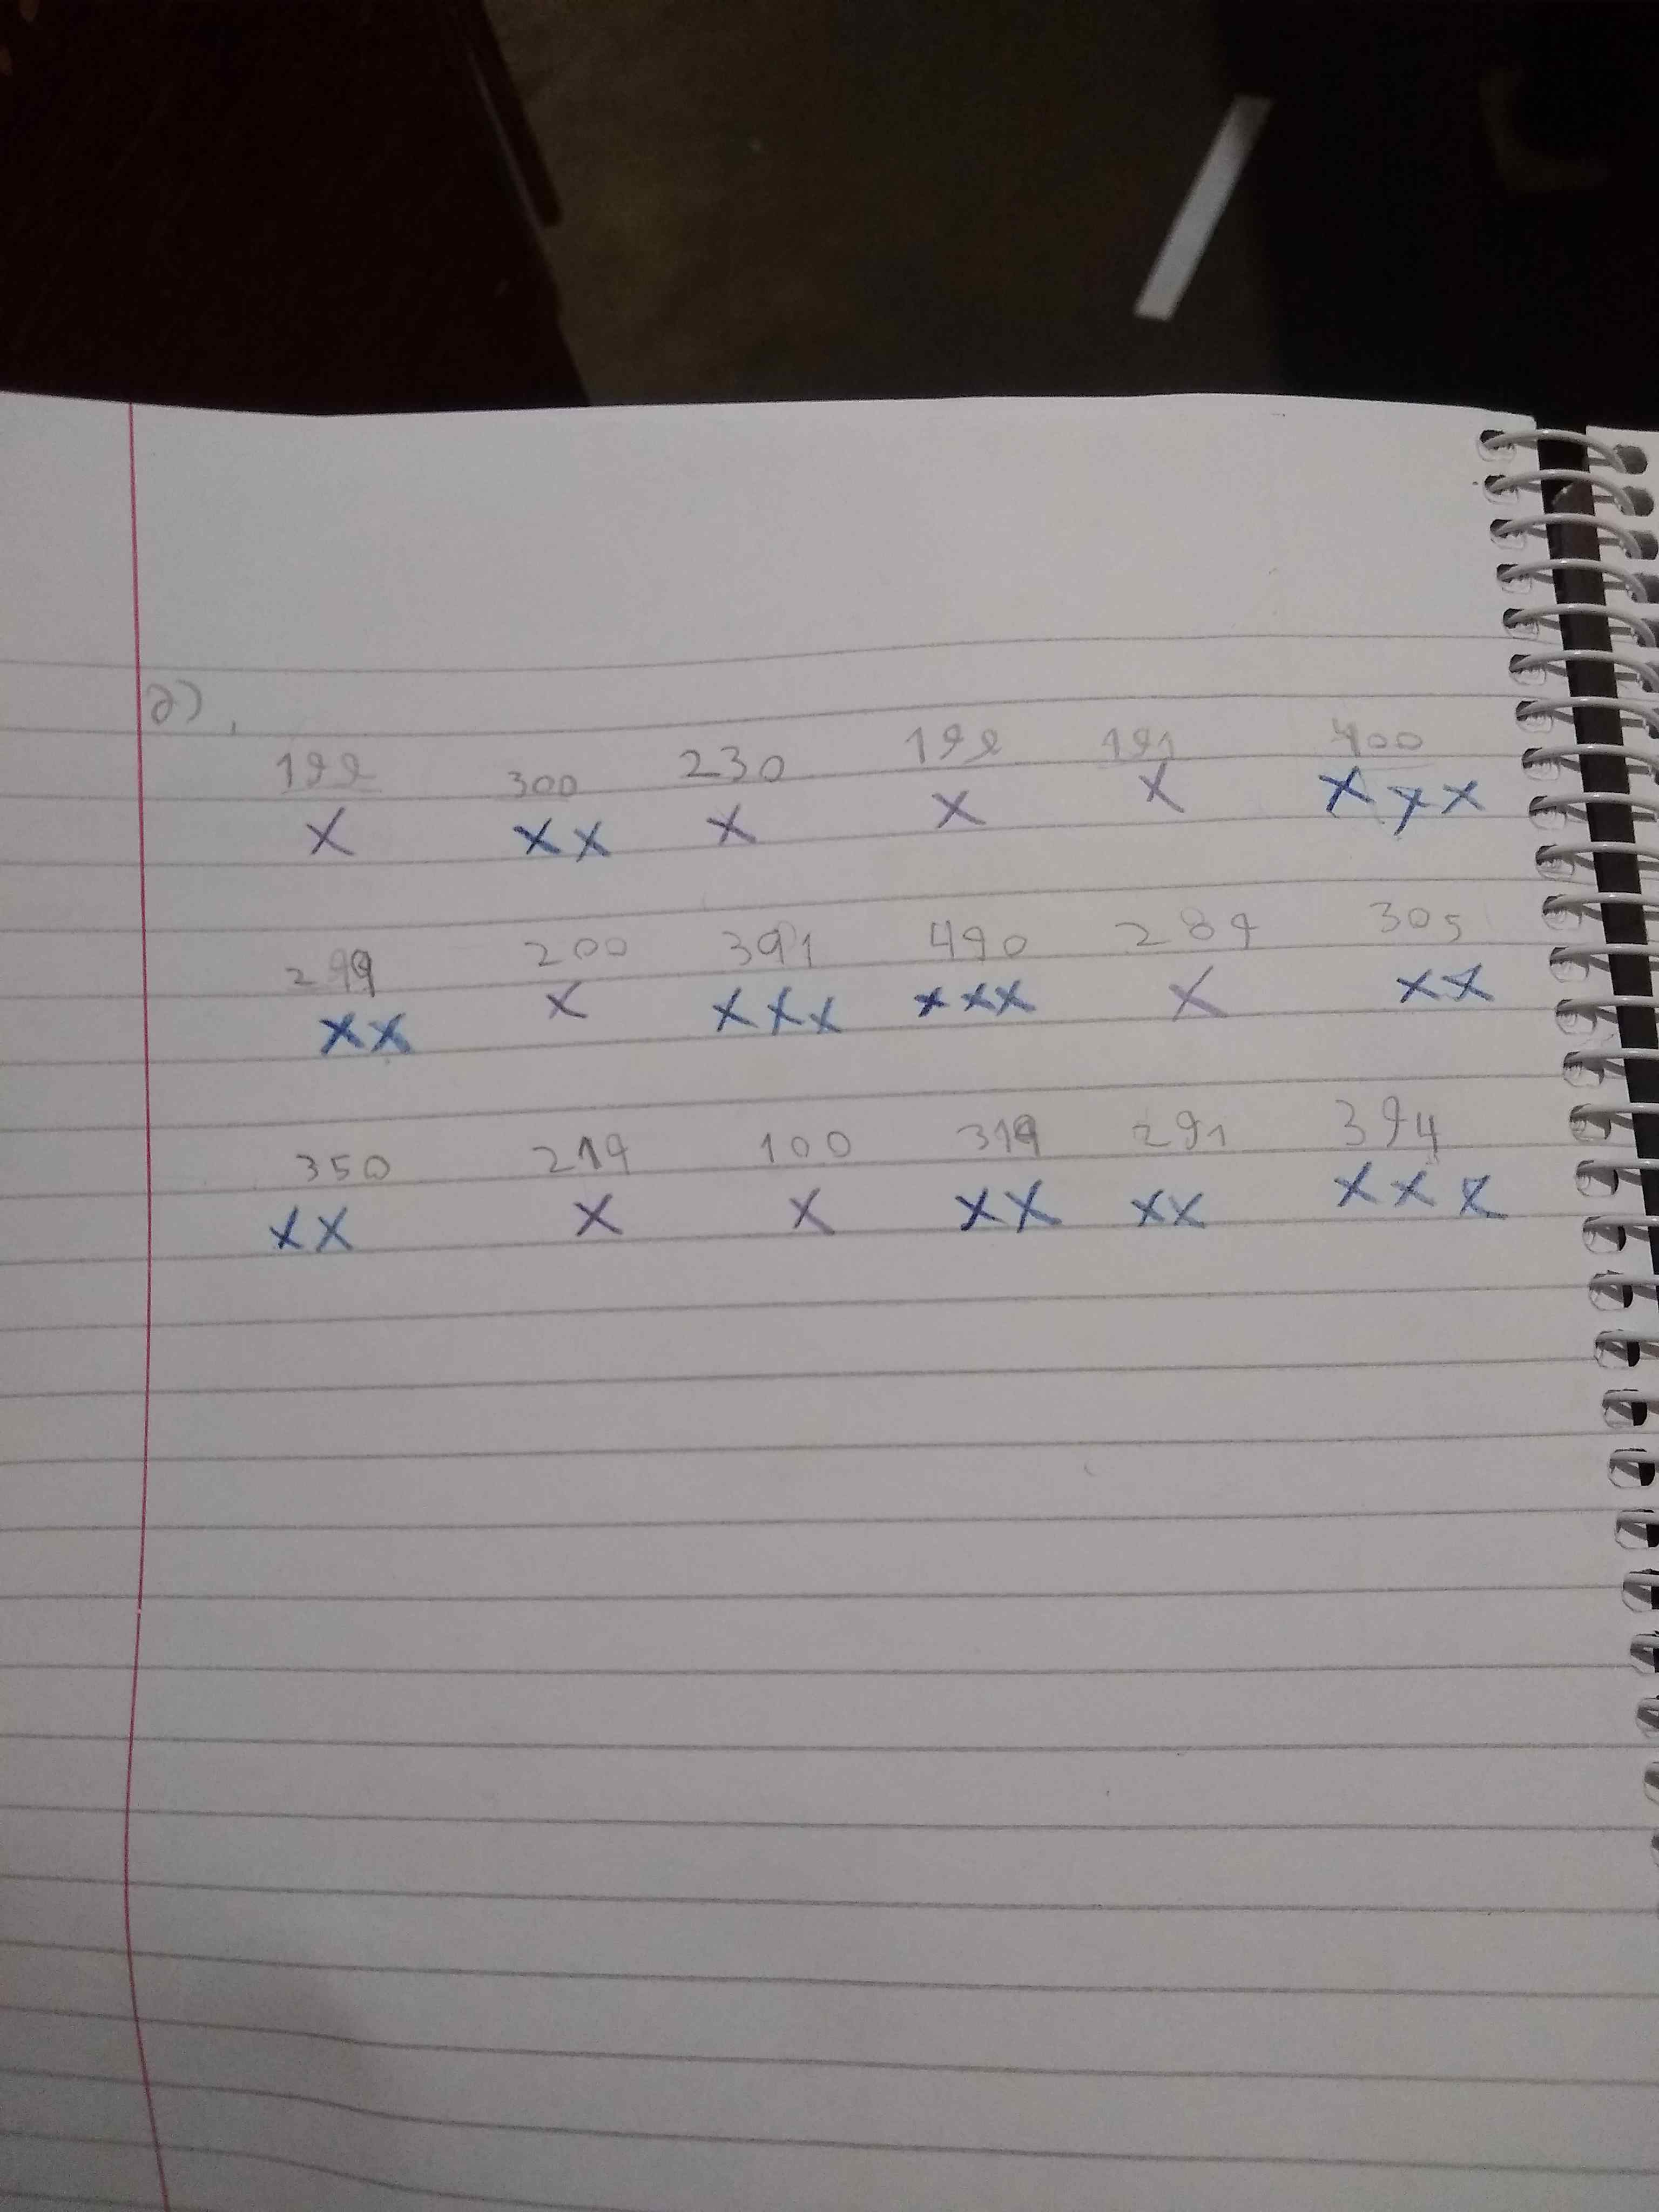 a)
199 300 230 199 191 400
X XX X X X XXX
299 200 391 490 289 305
XX X XXX XXX X XX
350 219 100 319 291 394
XX X X XX XX XXX